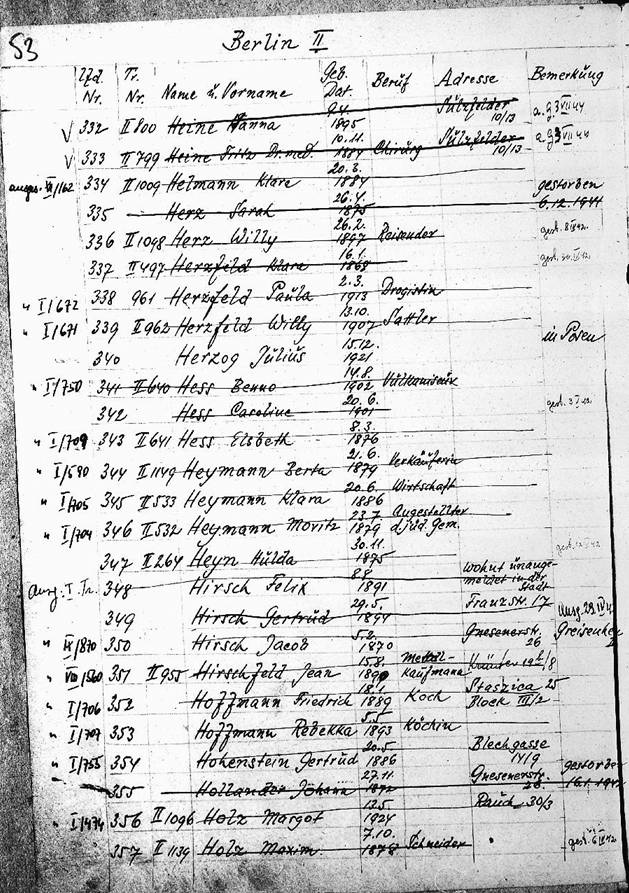 53
Berlin II
Lfd. Nr. Tr. Nr. Name u. Vorname Geb. Dat. Beruf Adresse Bemerkung
332 II 800 Heine Hanna 9.4. 1895 Sulzfelder 10/13 a.g. 3 VII 44
333 II 799 Heine Fritz Dr. med. 10.11. Chirurg Sulzfelder 10/13 a.g. 3 VII 44
334 II 1009 Helmann Klara 20.3. 1884 gestorben
335 Herz Sarah 26.4. 1875 6.12.1941
336 II 1098 Herz Willy 26.2. 1897 Reisender
337 II 497 Herzfeld Klara 16.1. 1868
I/672 338 961 Herzfeld Paula 2.3. 1913 Drogistin
I/671 339 II 962 Herzfeld Willy 13.10. 1907 Sattler
340 Herzog Julius 15.12. 1921 in Posen
I/750 341 II 640 Hess Benno 14.8. 1902 Vulkaniseur
342 Hess Caroline 20.6. 1901
I/709 343 II 641 Hess Elsbeth 8.3. 1876
I/590 344 II 1149 Heymann Berta 21.6. 1879 Verkäuferin
I/705 345 II 533 Heymann Klara 20.6. 1886 Wirtschaft
I/704 346 II 532 Heymann Moritz 23.7. 1879 Angestellter d. jüd. Gem.
347 II 264 Heyn Hulda 30.11. 1875
348 Hirsch Felix 8.8. 1891 wohnt unange-
meldet in der Stadt
349 Hirsch Gertrud 29.5. 1894 Franzstr. 17
350 Hirsch Jacob 5.2. 1870 Gnesenerstr. 26
351 II 955 Hirschfeld Jean 15.8. Kaufmann
I/706 352 Hoffmann Friedrich 18.1. 1889 Koch Staszica 25 Block III/2
I/707 353 Hoffmann Rebekka 5.5. 1893 Köchin
I/755 354 Hohenstein Gertrud 20.5. 1886 Blechgasse 14/9
355 Hollander Johann 27.11. 1872 Gnesenerstr. 26 gestorben 16.1.1942
I/474 356 II 1096 Holz Margot 12.5. 1924 Rauch 30/3
357 II 1139 Holz Maxim. 7.10. 1878 Schneider